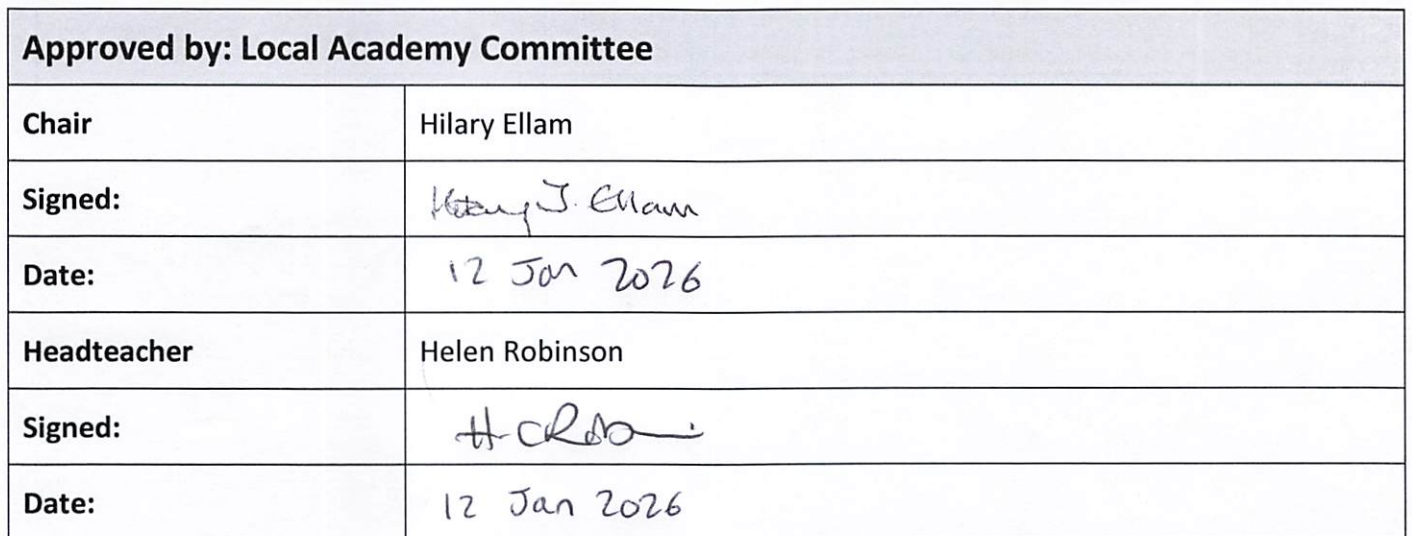 Approved by: Local Academy Committee
Chair Hilary Ellam
Signed: Hilary J. Ellam
Date: 12 Jan 2026
Headteacher Helen Robinson
Signed: H C Robinson
Date: 12 Jan 2026